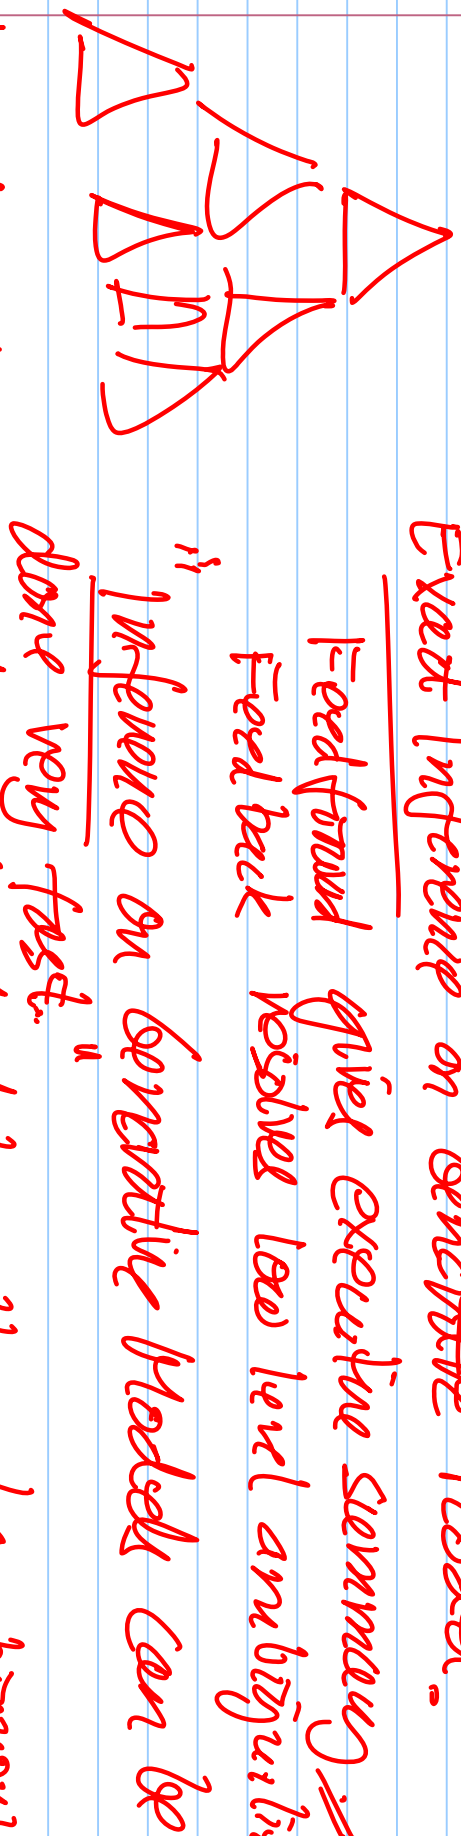 Exact Inference on
Feedforward gives executive summary
Feed back resolves low level ambiguities
"Inference on Generative Models can be
done very fast."